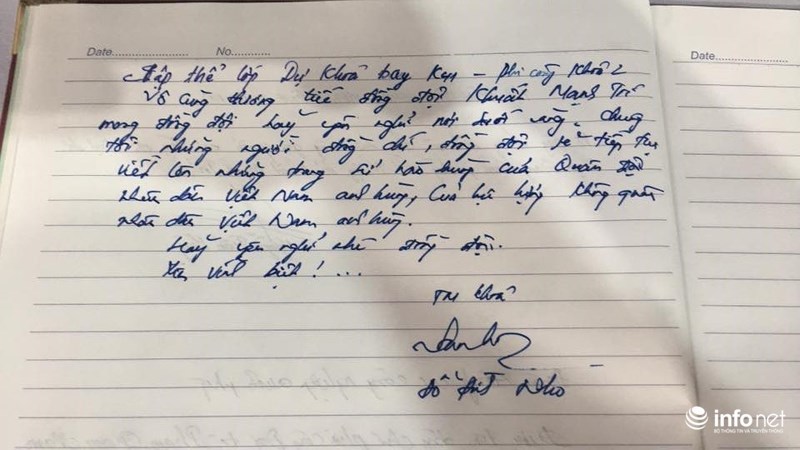 Date.................... No............
Date....................
Tập thể lớp Dự Khoá bay K44 – phi công Khoá 2
Vô cùng thương tiếc đồng đội Khuất Mạnh Trí
mong đồng đội hãy yên nghỉ nơi suối vàng. Chúng
tôi những người đồng chí, đồng đội sẽ tiếp tục
viết lên những trang sử hào hùng của Quân đội
nhân dân Việt Nam anh hùng, Của lực lượng không quân
nhân dân Việt Nam anh hùng.
Hãy yên nghỉ nhé đồng đội.
Xin vĩnh biệt! ...
TM Khoá
Đỗ Nho
infonet
BỘ THÔNG TIN VÀ TRUYỀN THÔNG